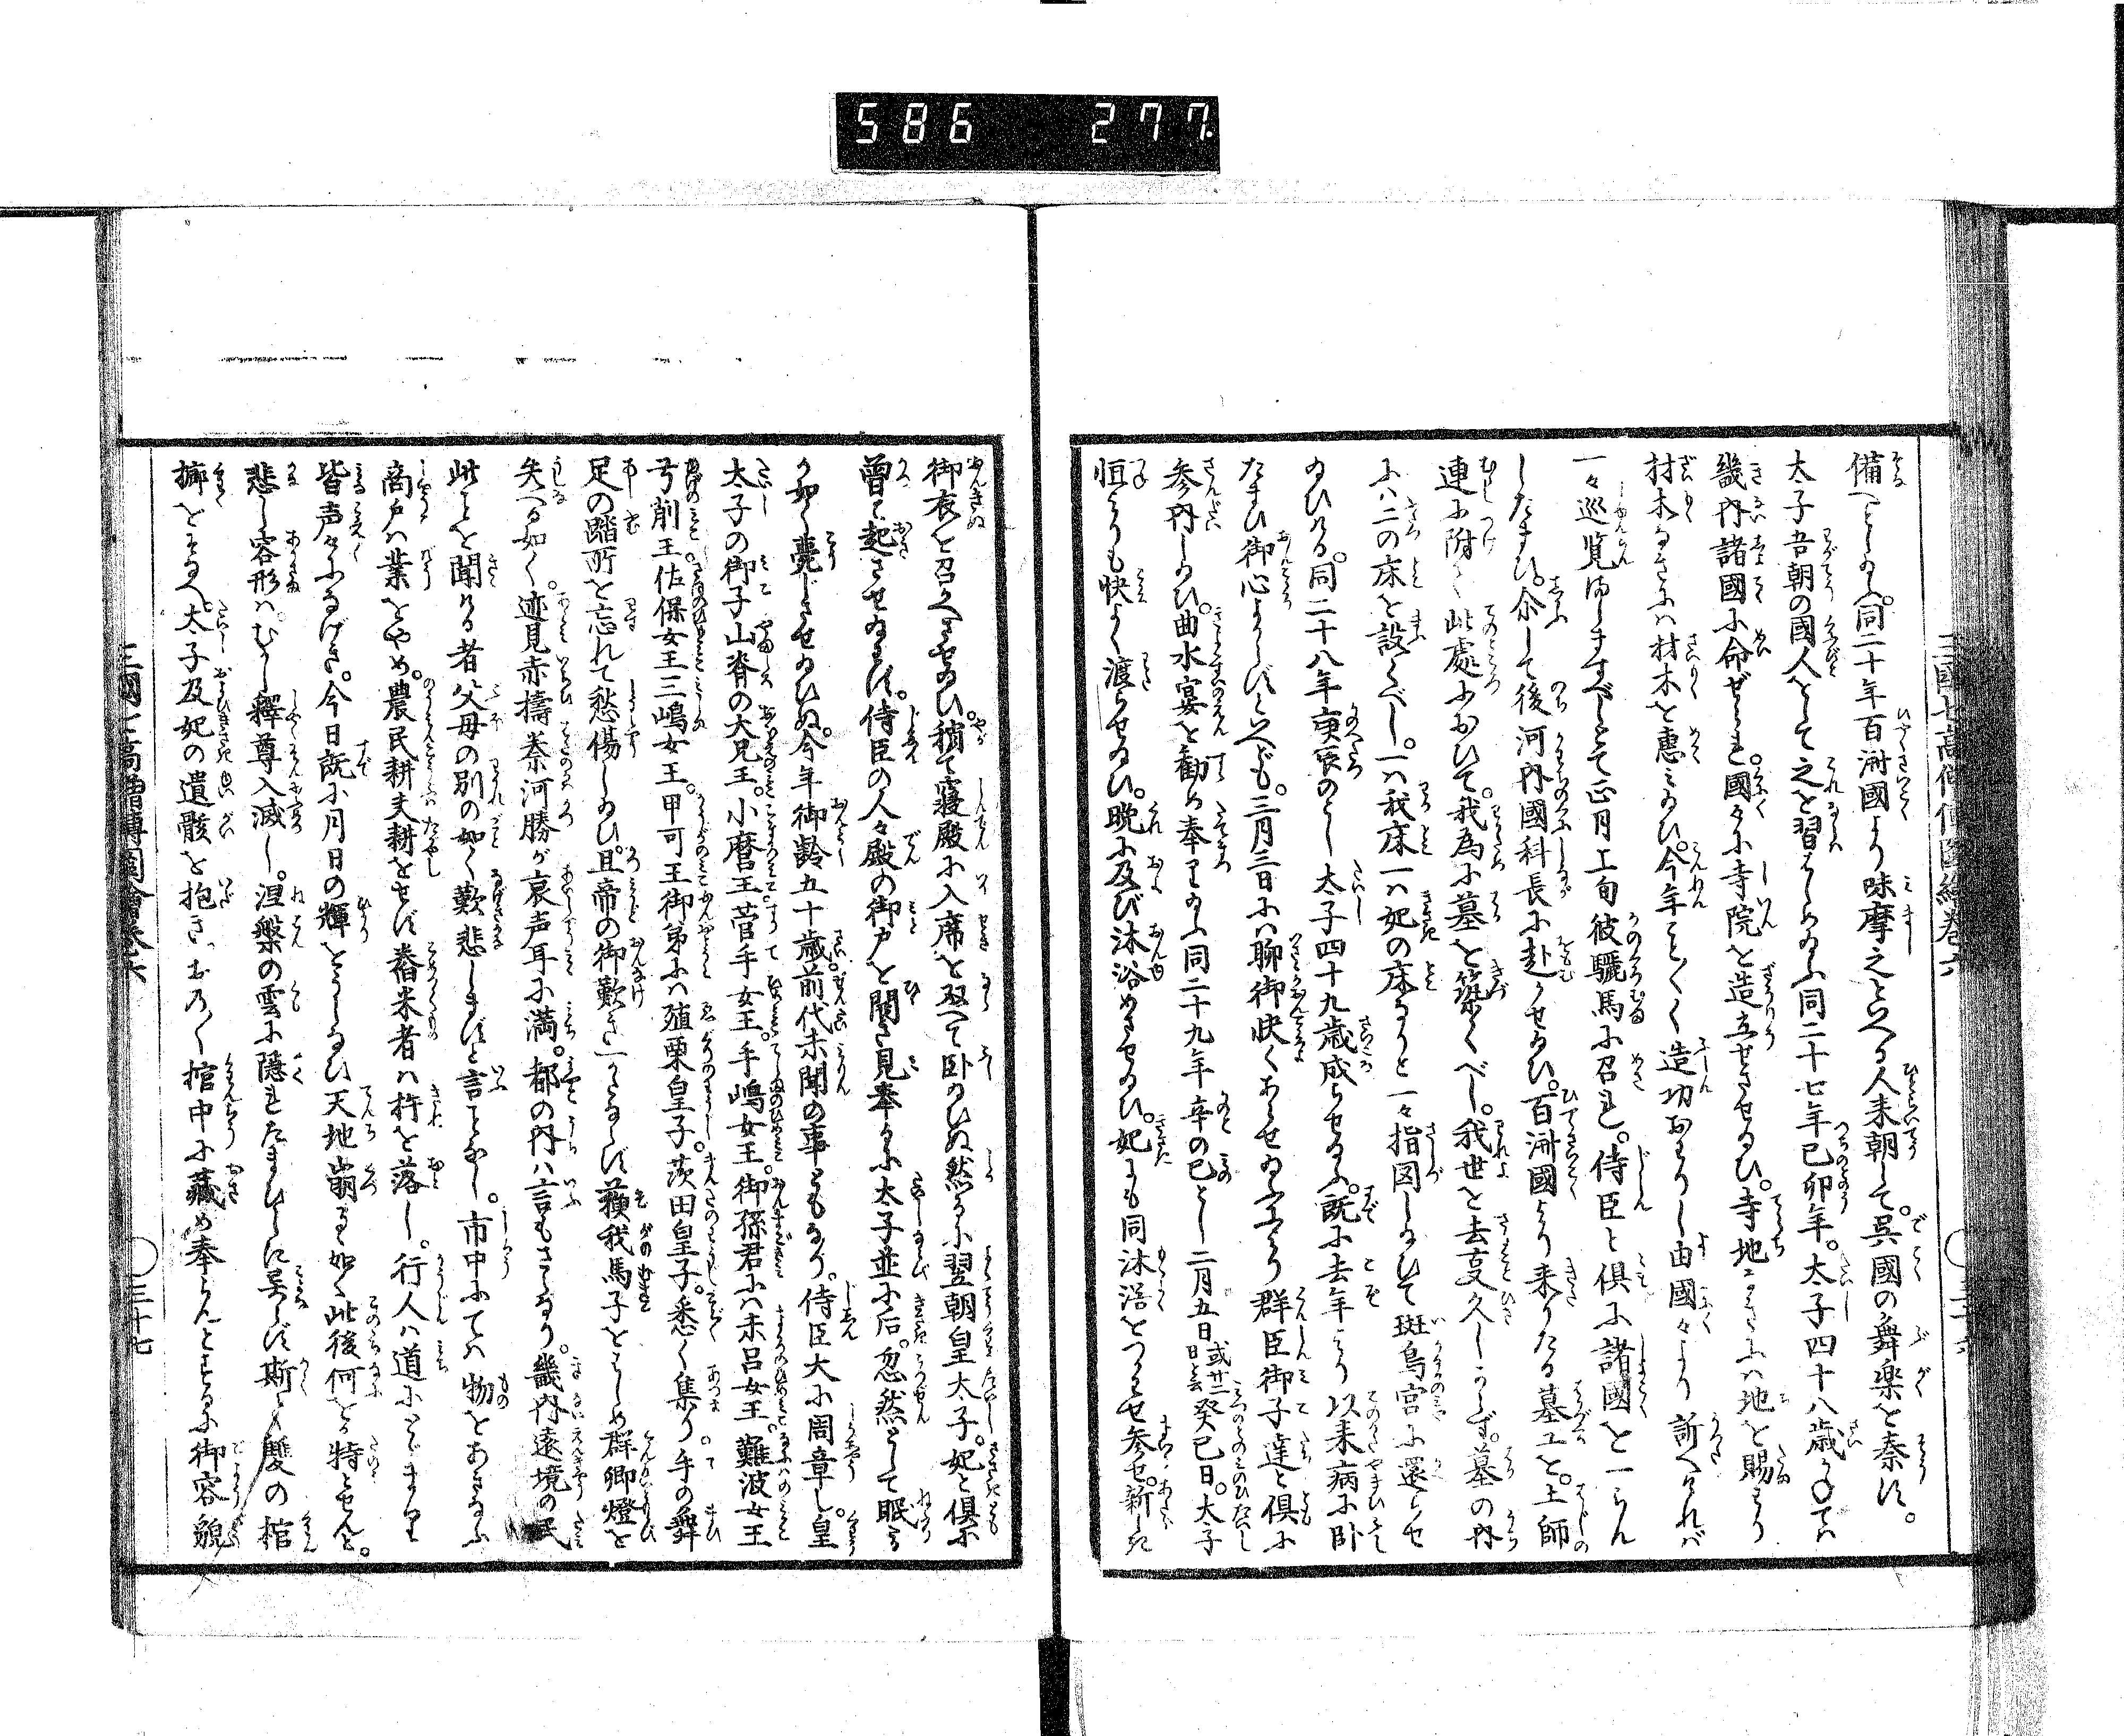 586 277
三國七高僧傳圖繪卷六
備へとしめ給ふ。同二十年百済國より味摩之といへる人来朝して。呉國の舞楽を奏す。
太子吾朝の國人をして之を習はしめ給ふ同二十七年己卯年。太子四十八歳にして
畿内諸國に命ぜられ。國々に寺院を造立せさせ給ひ。寺地なきには地を賜はり
材木なきには材木を惠み給ひ。今年こと〴〵く造功おはりし由國々より訴へければ
一々巡覧ましますべしとて正月上旬彼驪馬に召れ。侍臣と倶に諸國を一らん
したまひ。尒して後河内國科長に赴かせ給ひ。百済國より来りたる墓工と。土師
連に附て此處におひて。我為に墓を築くべし。我世を去夏久しからず。墓の内
には二の床を設くべし。一は我床一は妃の床なりと一々指図し給ひて斑鳥宮に還らせ
給ひける。同二十八年庚辰のとし太子四十九歳成らせ給ふ。既に去年より以来病に臥
たまひ御心よからずといへども。三月三日には聊御快くあらせ給ふより群臣御子達と倶に
参内し給ひ。曲水宴を勧め奉り給ふ同二十九年辛の巳とし二月五日或廿二日と云癸巳日。太子
恒よりも快よく渡らせ給ひ。晩に及び沐浴めさせ給ひ。妃にも同沐浴をつかはせ参せ。新しき
御衣を召かへさせ給ひ。稍て寝殿に入席を双へて臥給ひぬ然るに翌朝皇太子。妃と倶に
曽て起させ給はず。侍臣の人々殿の御戸を開き見奉るに太子並に后。忽然として眠るが
如く薨じさせ給ひぬ。今年御齢五十歳前代未聞の事ともなり。侍臣大に周章し。皇
太子の御子山背の大兄王。小麿王。菅手女王。手嶋女王。御孫君には未呂女王。難波女王
弓削王。佐保女王三嶋女王。甲可王御弟には殖栗皇子。茨田皇子。悉く集り手の舞
足の踏所を忘れて愁傷し給ひ。且帝の御歎き一かたならず蘓我馬子をはじめ群卿燈を
失へる如く。迹見赤檮秦河勝が哀声耳に満。都の内は言もさらなり。畿内遠境の民
此ことを聞ける者父母の別の如く歎悲しまずと言ことなし。市中にては物をあきなふ
商戸は業をやめ。農民耕夫耕をせず舂米者は杵を落し。行人は道にとゞまり
皆声々になげき。今日既に月日の輝をうしなひ天地崩るゝ如く此後何をか恃とせんと。
悲し容形は。むかし釋尊入滅し。涅槃の雲に隠れたまひしに異らず斯て雙の棺
擲をそなへ。太子及妃の遺骸を抱き
棺中に藏め奉らんとするに御容貌
三國七高僧傳圖會卷六
三十七